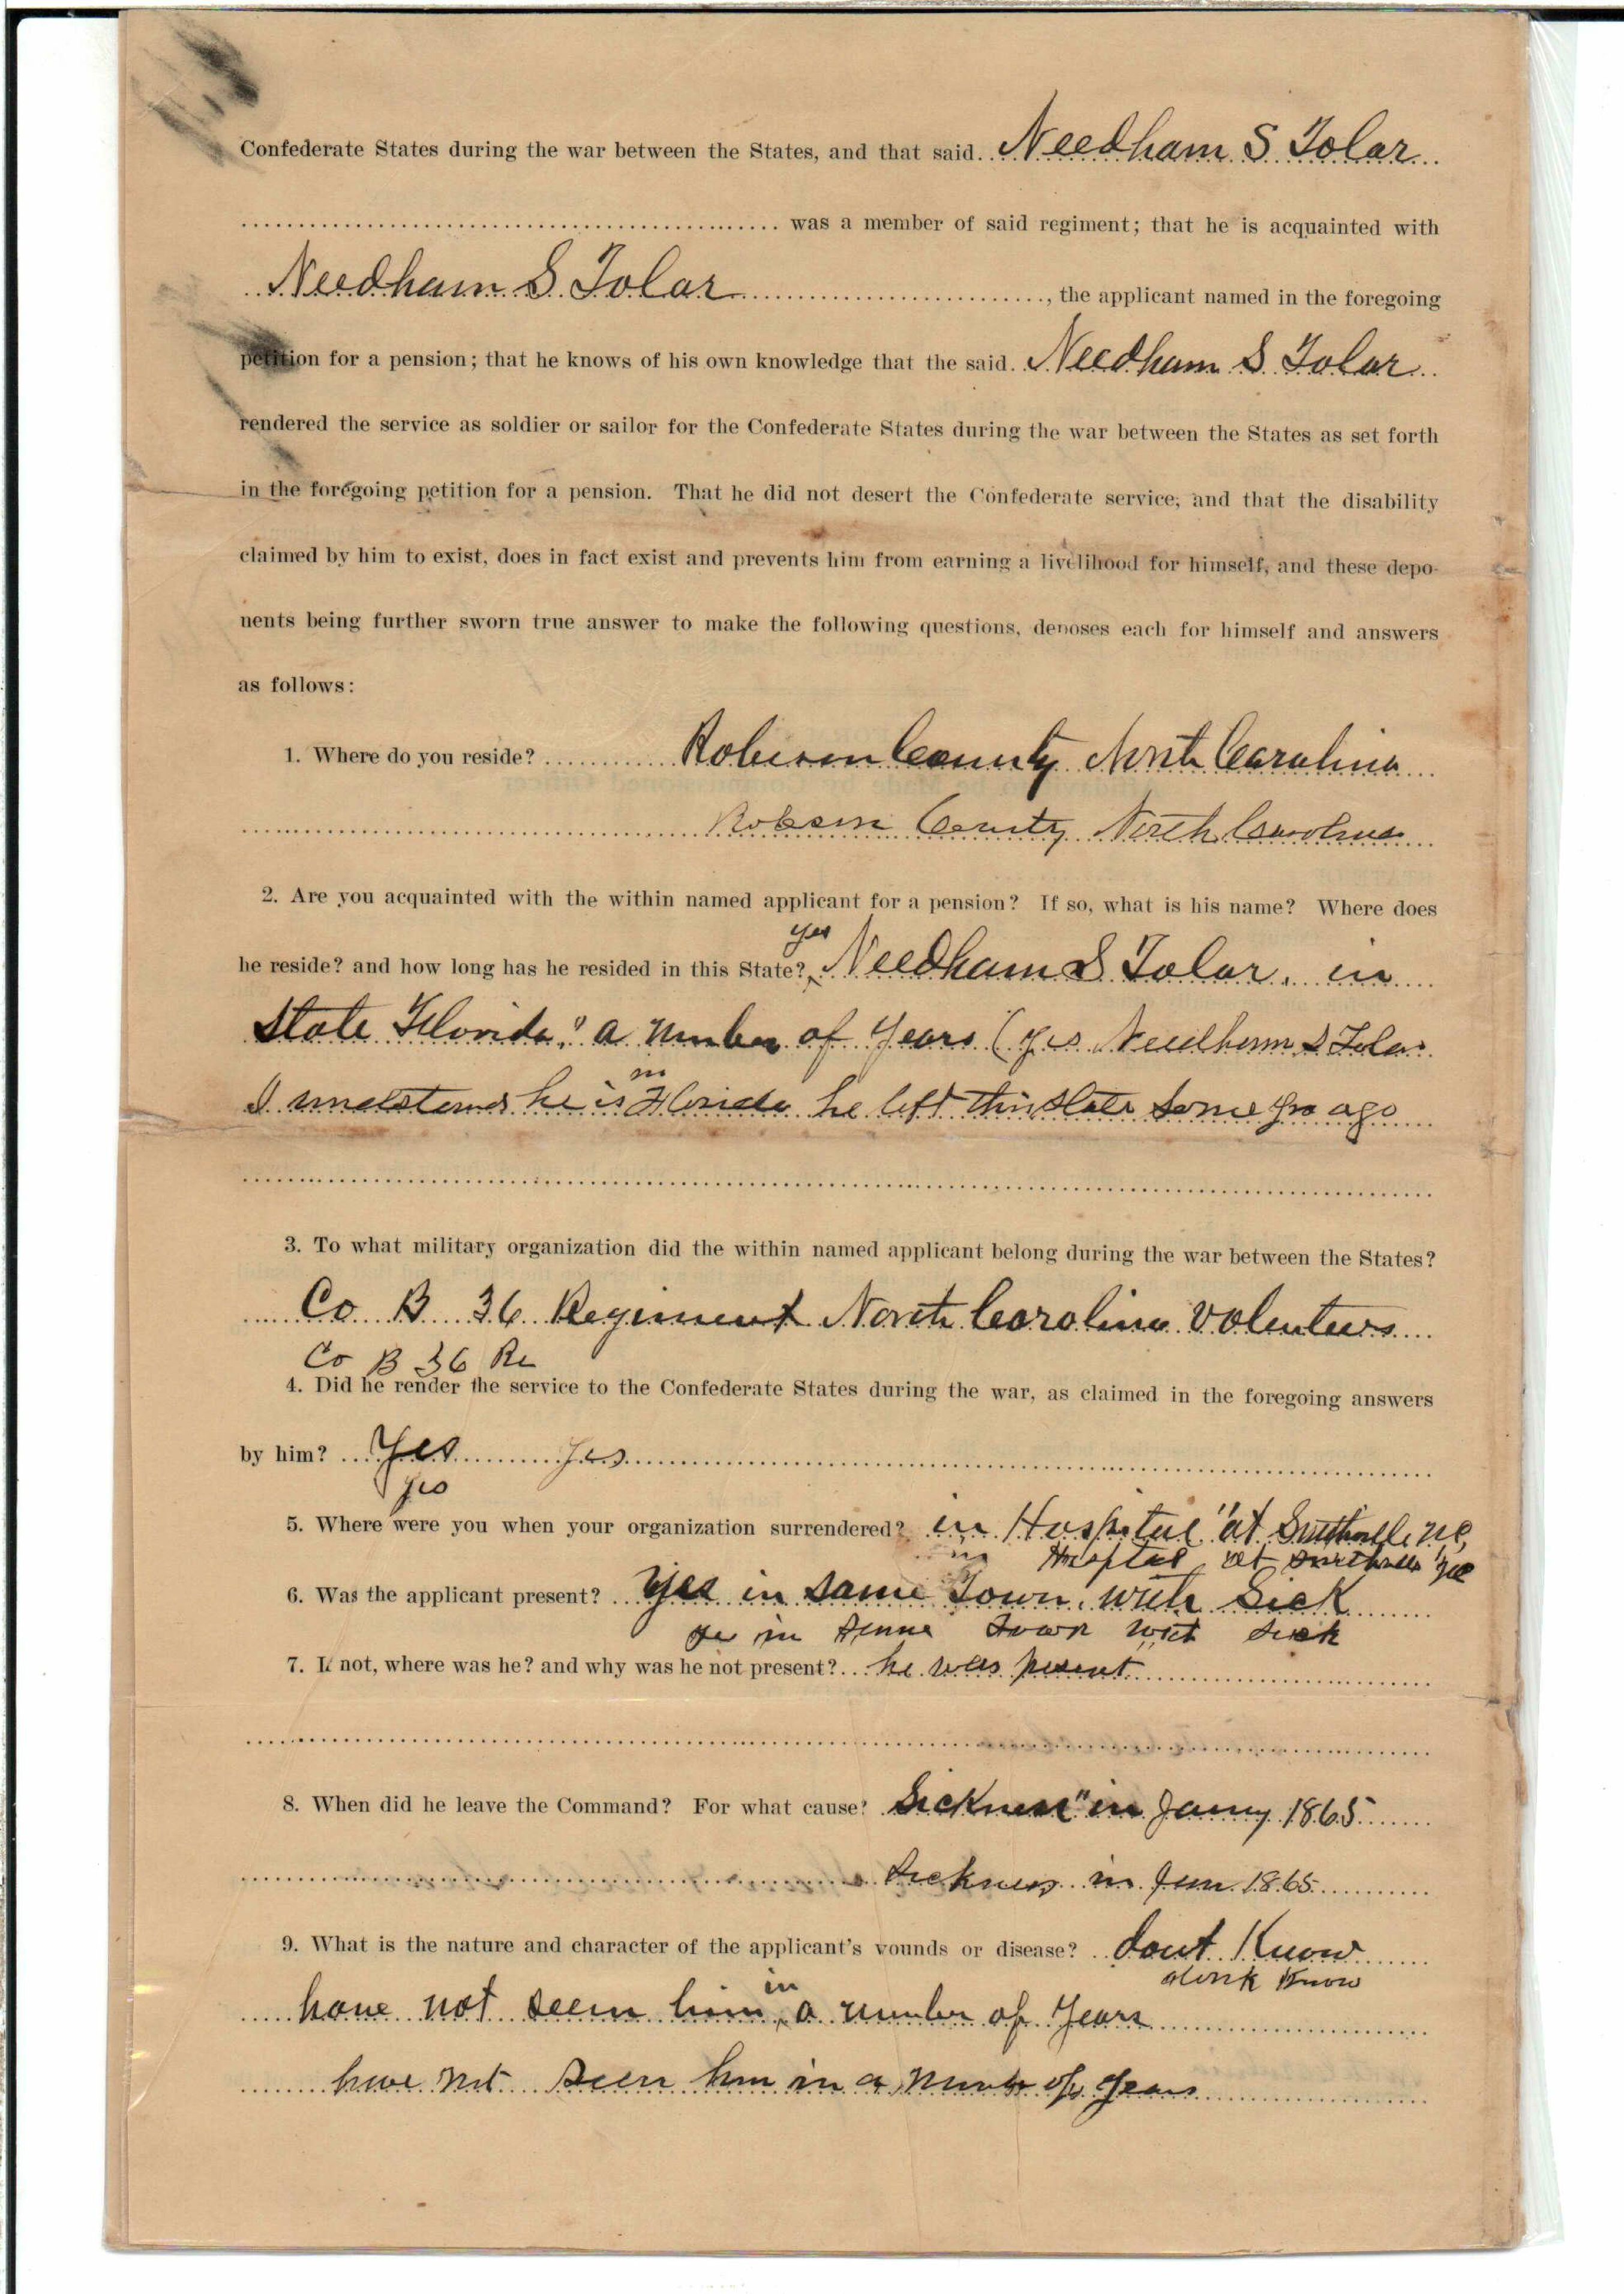 Confederate States during the war between the States, and that said Needham S Tolar
was a member of said regiment; that he is acquainted with
Needham S Tolar, the applicant named in the foregoing
petition for a pension; that he knows of his own knowledge that the said Needham S Tolar
rendered the service as soldier or sailor for the Confederate States during the war between the States as set forth
in the foregoing petition for a pension. That he did not desert the Confederate service, and that the disability
claimed by him to exist, does in fact exist and prevents him from earning a livelihood for himself, and these depo-
nents being further sworn true answer to make the following questions, deposes each for himself and answers
as follows:
1. Where do you reside? Robison County North Carolina
Robson County North Carolina
2. Are you acquainted with the within named applicant for a pension? If so, what is his name? Where does
he reside? and how long has he resided in this State? yes Needham S Tolar, in
State Florida," a number of years (yes Needham S Tolar
I understand he is in Florida he left this state some yrs ago
3. To what military organization did the within named applicant belong during the war between the States?
Co B 36 Regiment North Carolina Volenteers
Co B 36 Re
4. Did he render the service to the Confederate States during the war, as claimed in the foregoing answers
by him? Yes yes
yes
5. Where were you when your organization surrendered? in Hospital "at Smithville NC,
in Hospital at Smithville NC
6. Was the applicant present? Yes in same Town, with Sick
in same Town with sick
7. If not, where was he? and why was he not present? he was present
8. When did he leave the Command? For what cause? Sickness "in Jany 1865
Sickness in Jan 1865
9. What is the nature and character of the applicant's wounds or disease? dont Know
dont Know
have not seem him in a number of Years
have not seen him in a number of years